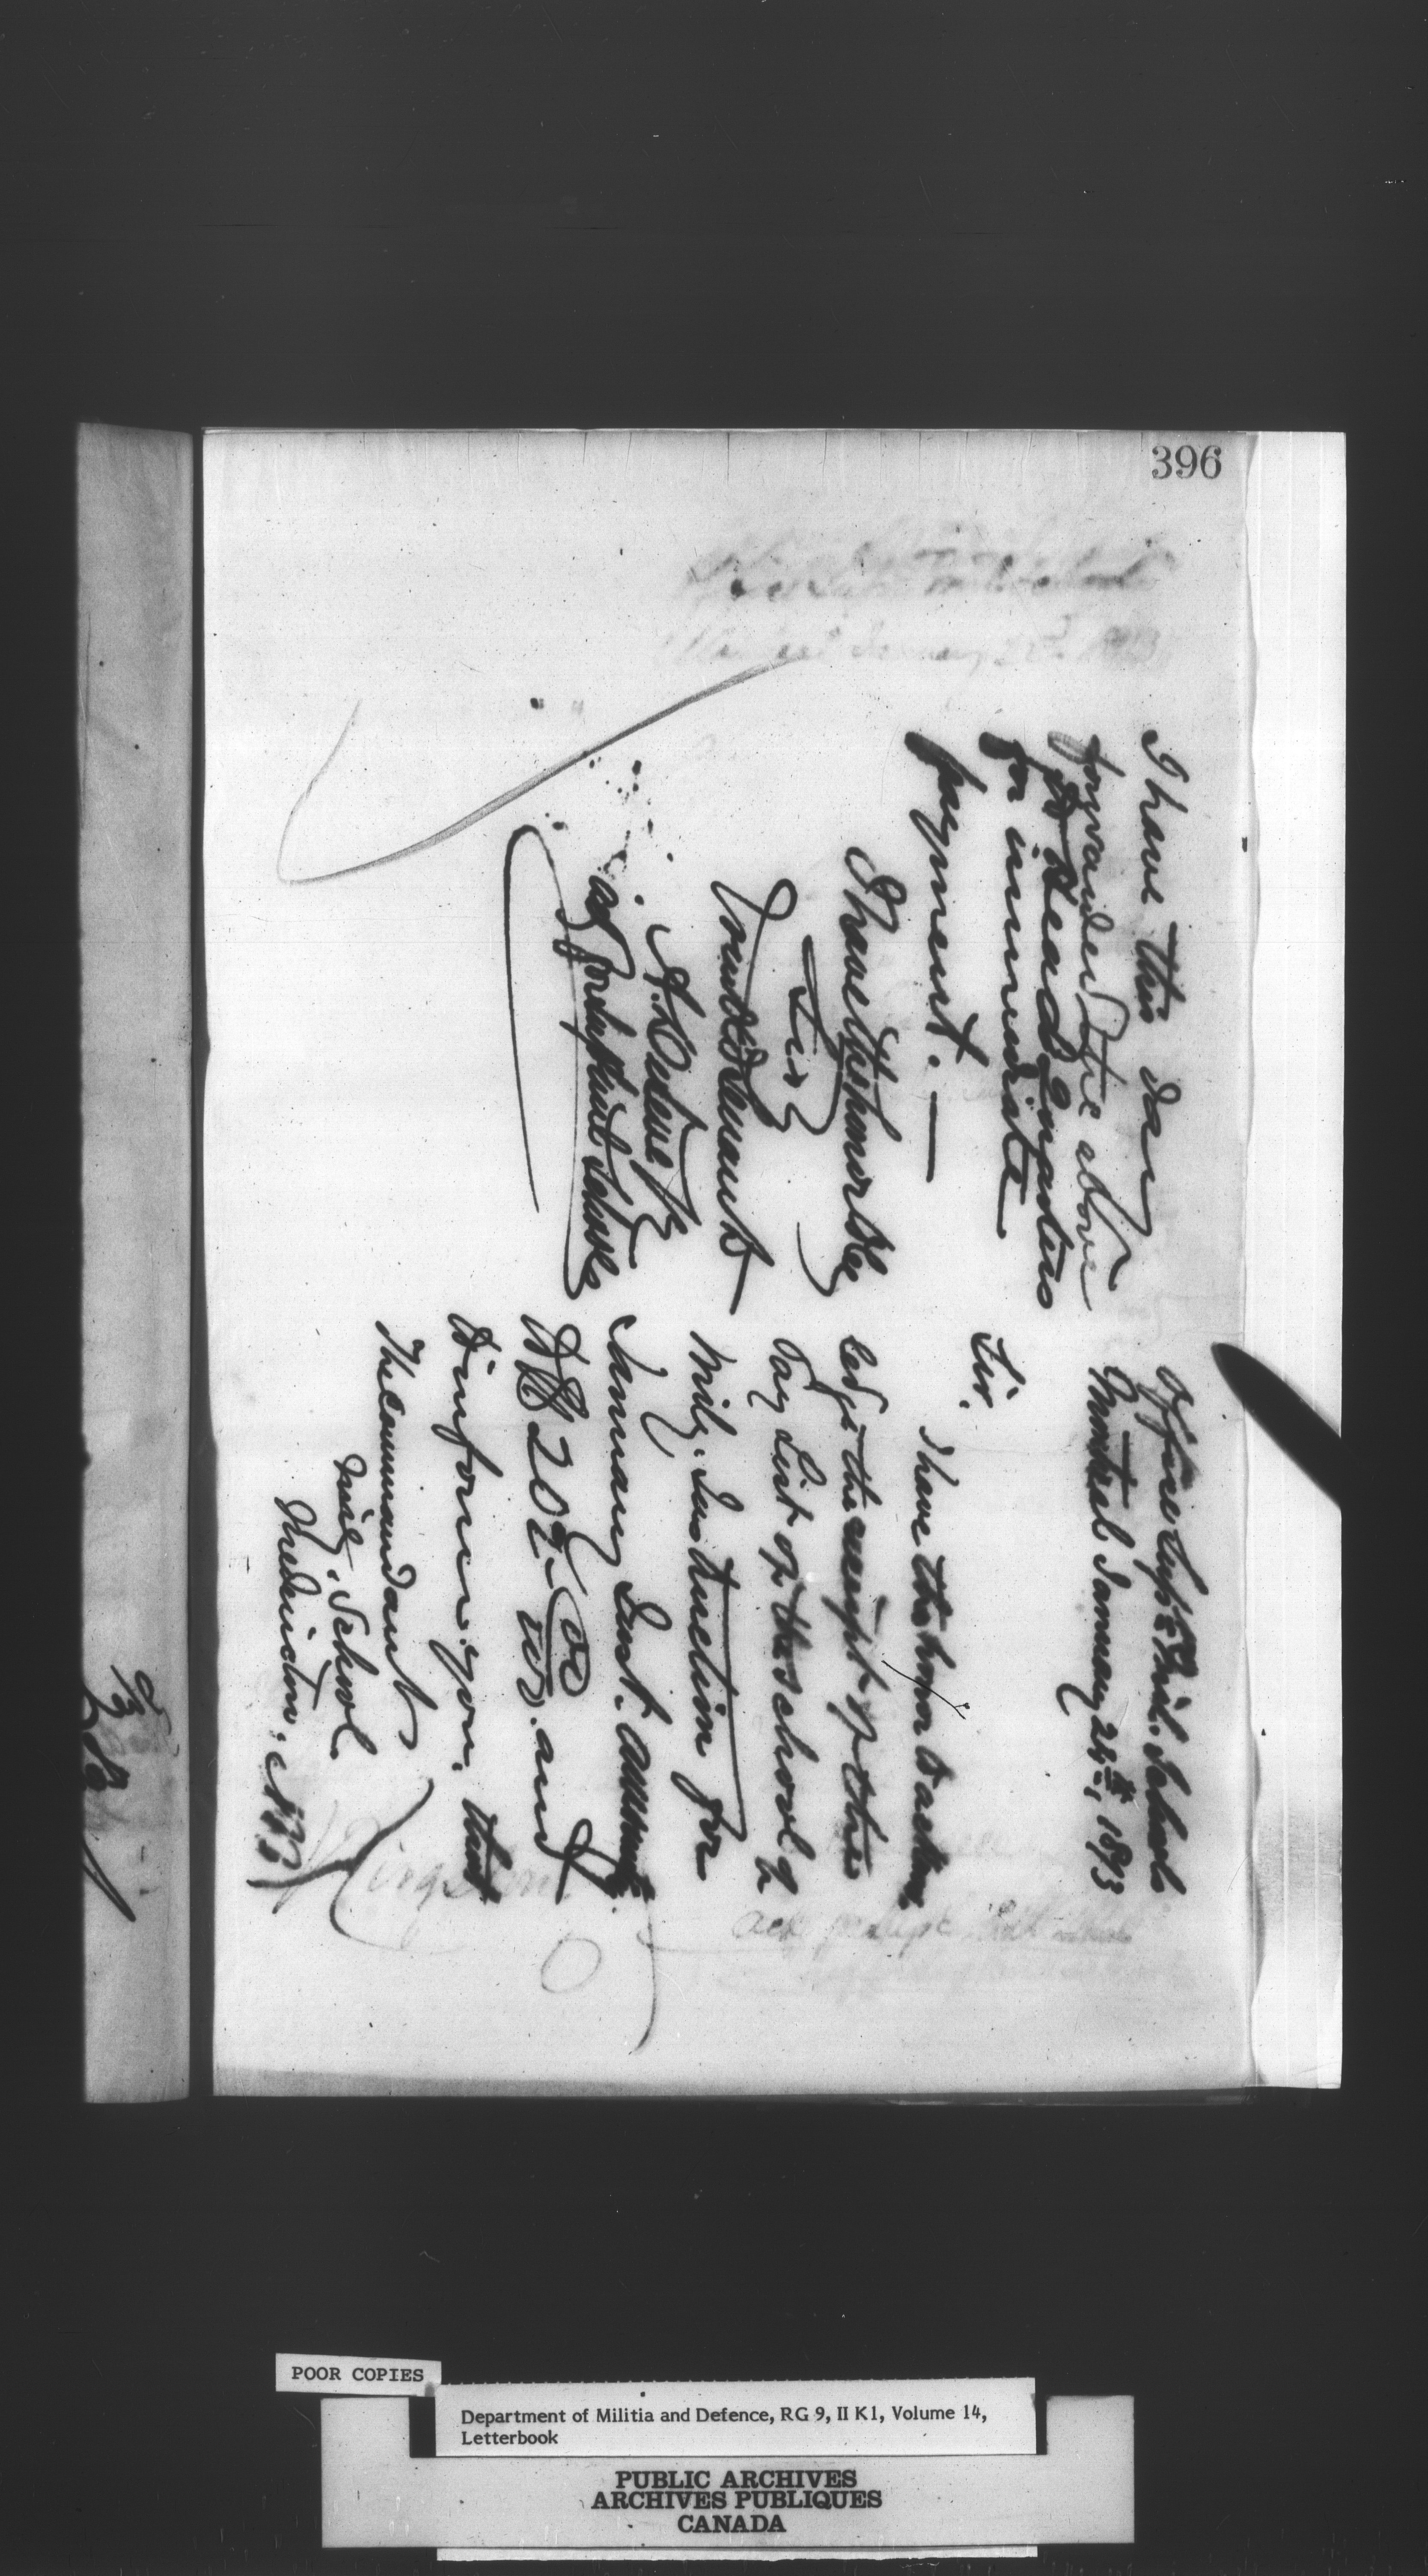 396
Office Supt. Mil. Schools
Montreal January 24th, 1873
Sir,
I have the honor to acknow
ledge the receipt of the
Pay List of the School of
Mily. Instruction for
January Inst. amount
to $202 00/100 and
to inform you, that
The Commandant
Mily. School
Fredericton, N.B.
I have this day
forwarded the above
to Head Quarters
for immediate
payment. —
I have the honor to be
Sir
Your obdt Servant
Schools
POOR COPIES
Department of Militia and Defence, RG 9, II K1, Volume 14,
Letterbook
PUBLIC ARCHIVES
ARCHIVES PUBLIQUES
CANADA